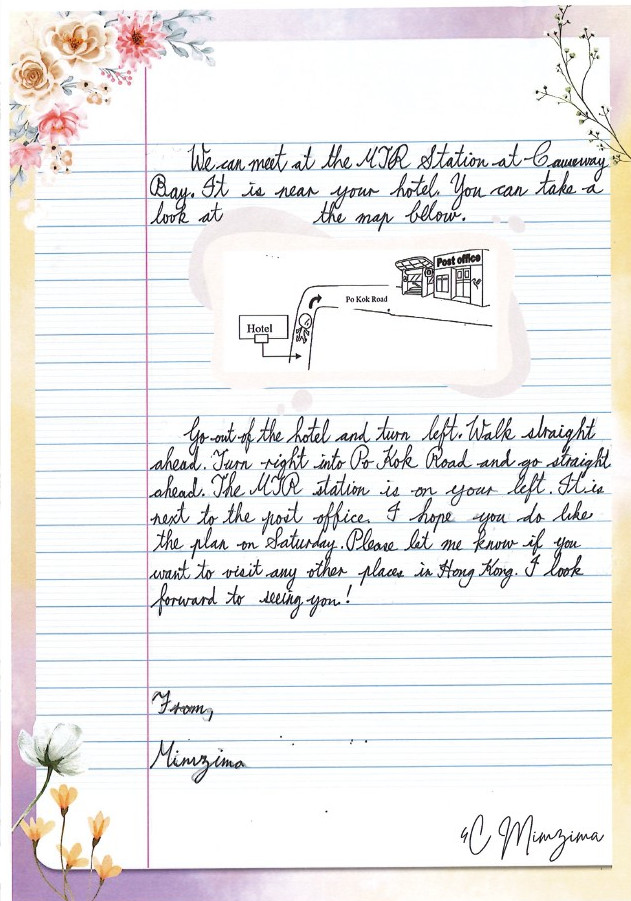 We can meet at the MTR Station at Causeway
Bay. It is near your hotel. You can take a
look at the map below.
Post office
Po Kok Road
Hotel
Go out of the hotel and turn left. Walk straight
ahead. Turn right into Po Kok Road and go straight
ahead. The MTR station is on your left. It is
next to the post office. I hope you do like
the plan on Saturday. Please let me know if you
want to visit any other places in Hong Kong. I look
forward to seeing you!
From,
Mimzima
4C Mimzima